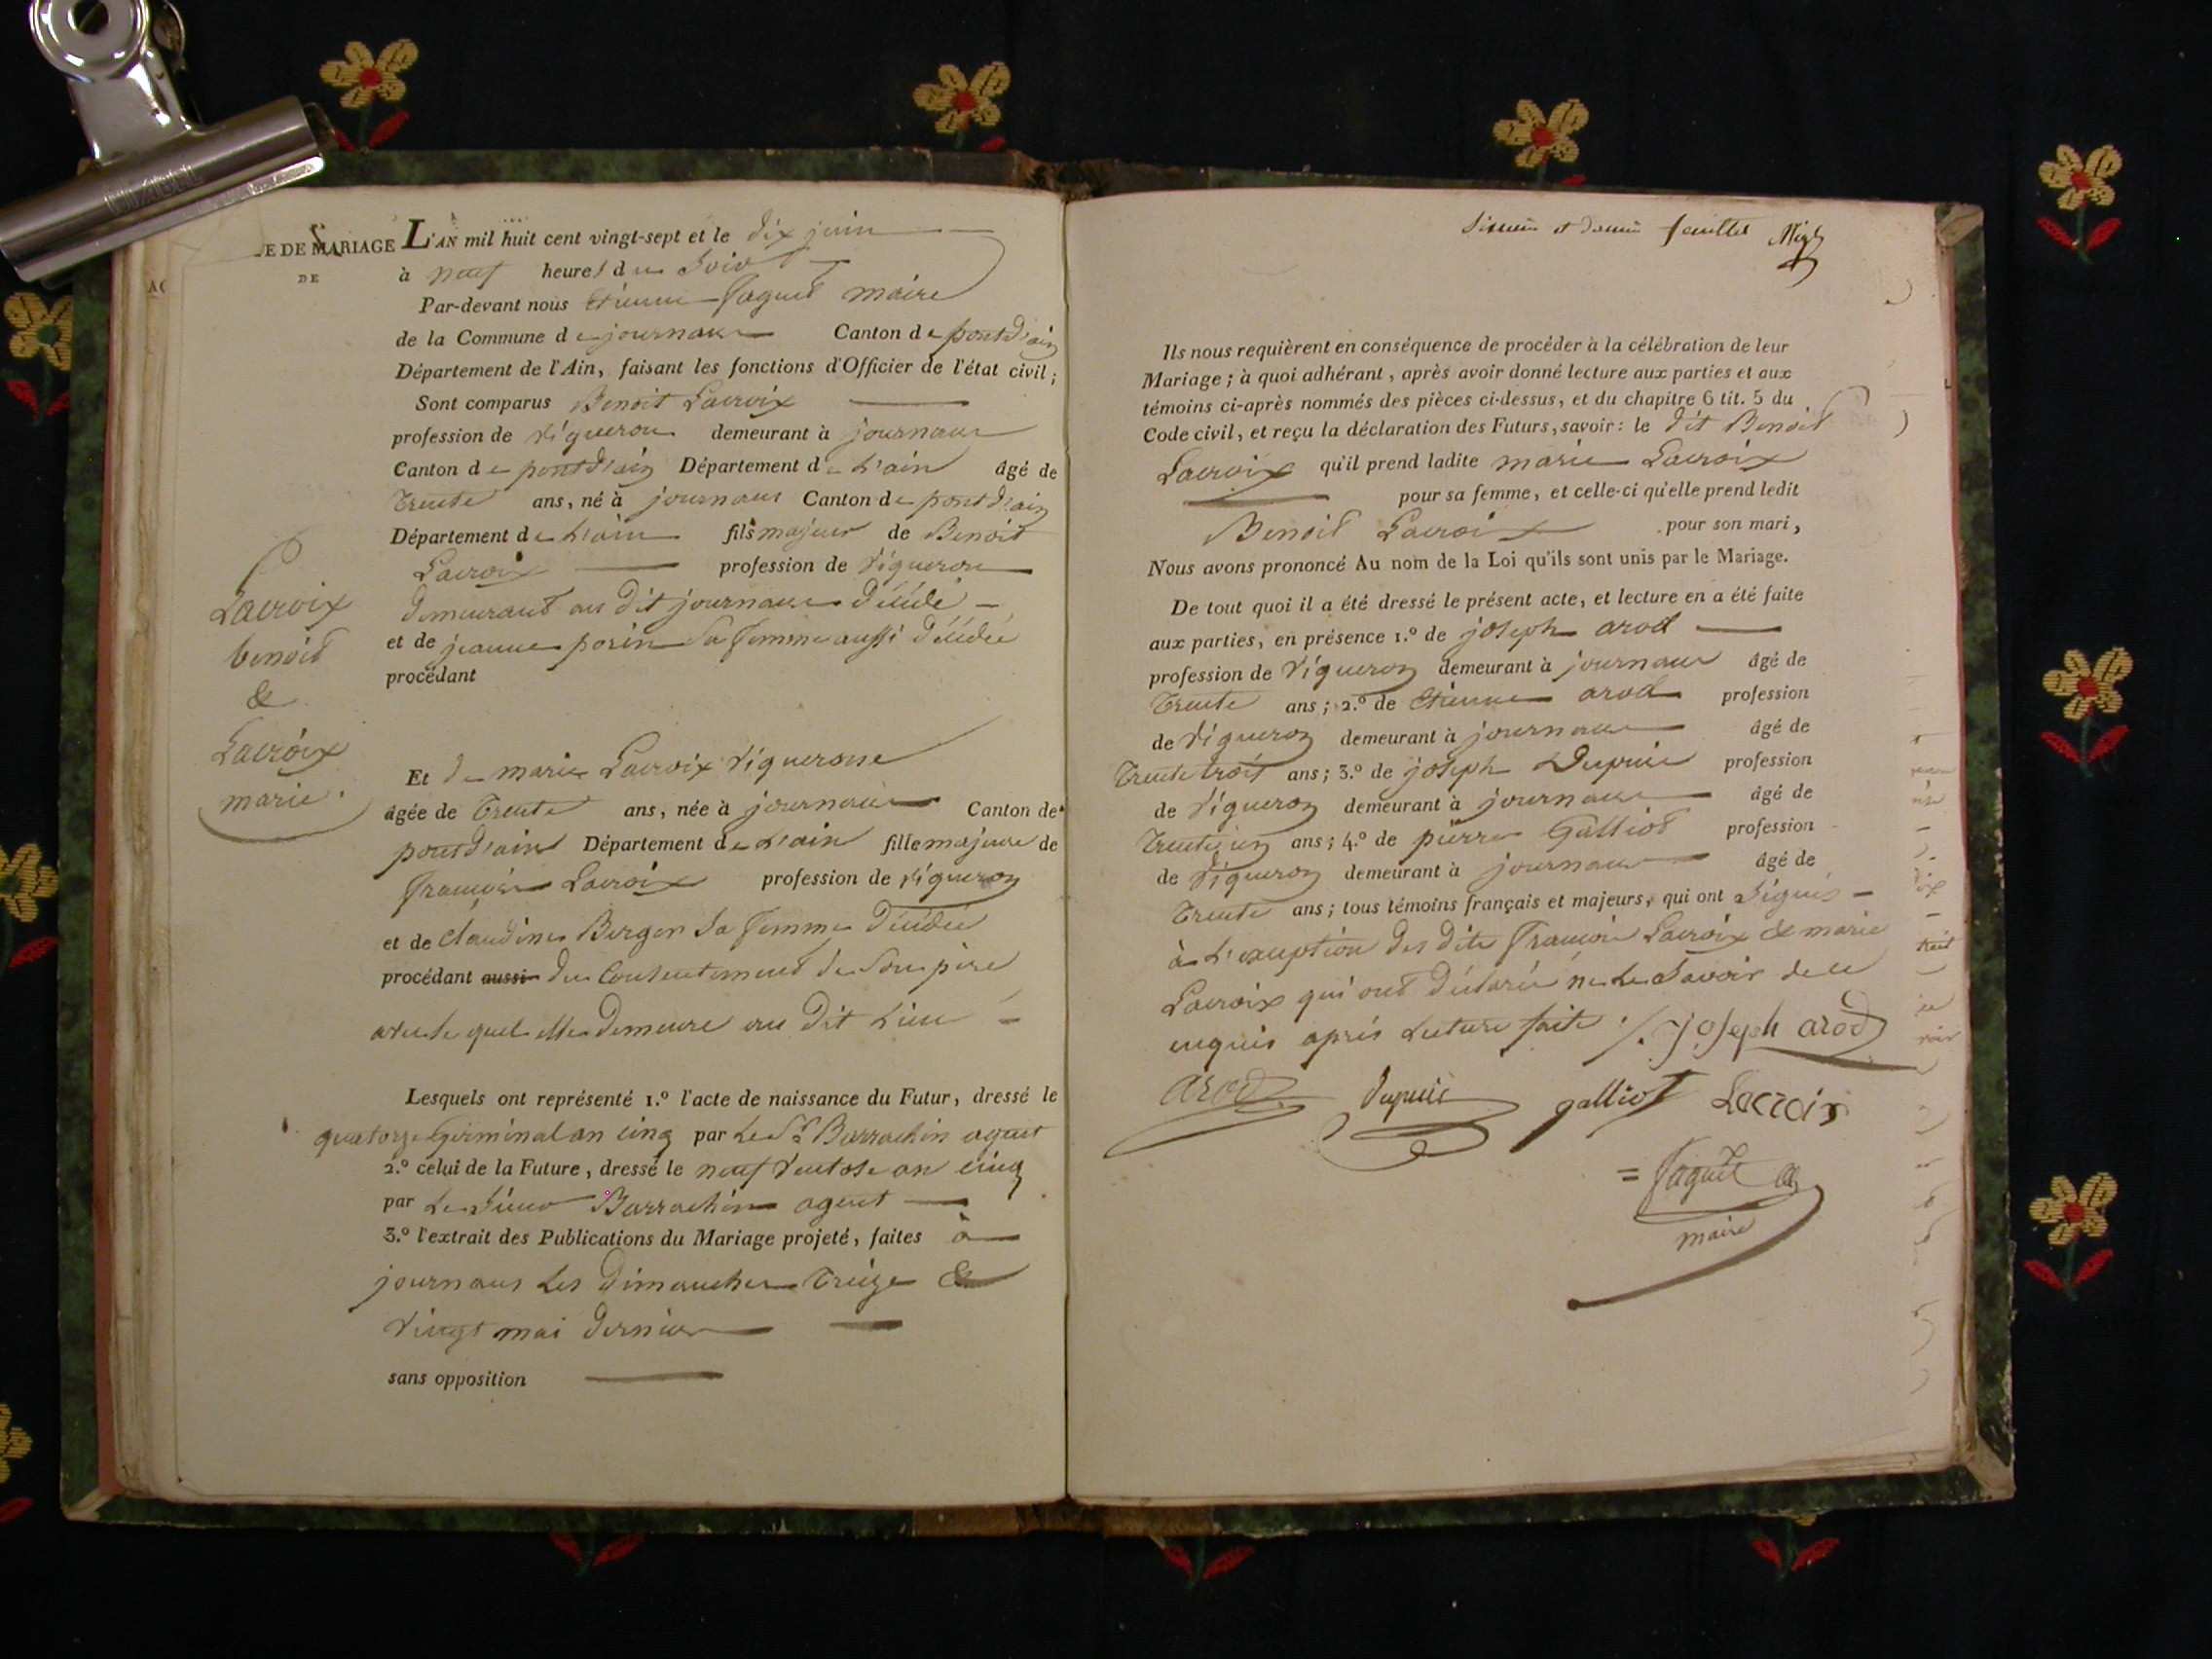 E DE MARIAGE
DE
AC
L'AN mil huit cent vingt-sept et le dix juin
à neuf heures du soir
Par-devant nous Etienne Faguet maire
de la Commune de journans Canton de pontd'ain
Département de l'Ain, faisant les fonctions d'Officier de l'état civil;
Sont comparus Benoit Lacroix
profession de vigneron demeurant à journans
Canton de pontd'ain Département de L'ain âgé de
trente ans, né à journans Canton de pontd'ain
Département de L'ain fils majeur de Benoit
Lacroix profession de vigneron
demeurant au dit journans décédé
et de jeanne porin sa femme aussi décédée
procédant
Lacroix
benoit
&
Lacroix
marie.
Et de marie Lacroix vigneronne
âgée de trente ans, née à journans Canton de
pontd'ain Département de L'ain fille majeure de
françois Lacroix profession de vigneron
et de claudine Berger sa femme décédée
procédant aussi du consentement de son père
avec le quel elle demeure au dit Lieu
Lesquels ont représenté 1.º l'acte de naissance du Futur, dressé le
quatorze germinal an cinq par Le Sr Barrachin agent
2.º celui de la Future, dressé le neuf ventose an cinq
par Le Sieur Barrachin agent
3.º l'extrait des Publications du Mariage projeté, faites à
journans Les dimanches treize &
vingt mai dernier
sans opposition
feuillet
Ils nous requièrent en conséquence de procéder à la célébration de leur
Mariage; à quoi adhérant, après avoir donné lecture aux parties et aux
témoins ci-après nommés des pièces ci-dessus, et du chapitre 6 tit. 5 du
Code civil, et reçu la déclaration des Futurs, savoir: le dit Benoit
Lacroix qu'il prend ladite marie Lacroix
pour sa femme, et celle-ci qu'elle prend ledit
Benoit Lacroix pour son mari,
Nous avons prononcé Au nom de la Loi qu'ils sont unis par le Mariage.
De tout quoi il a été dressé le présent acte, et lecture en a été faite
aux parties, en présence 1.º de joseph arod
profession de vigneron demeurant à journans âgé de
trente ans; 2.º de Etienne arod profession
de vigneron demeurant à journans âgé de
trente trois ans; 3.º de joseph Dupuis profession
de vigneron demeurant à journans âgé de
trente un ans; 4.º de pierre Galliot profession
de vigneron demeurant à journans âgé de
trente ans; tous témoins français et majeurs, qui ont signés
à L'exception des dits françois Lacroix & marie
Lacroix qui ont déclarés ne Le savoir de ce
enquis après Lecture faite ./. joseph arod
arod dupuis galliot Lacroix
= faguet
maire